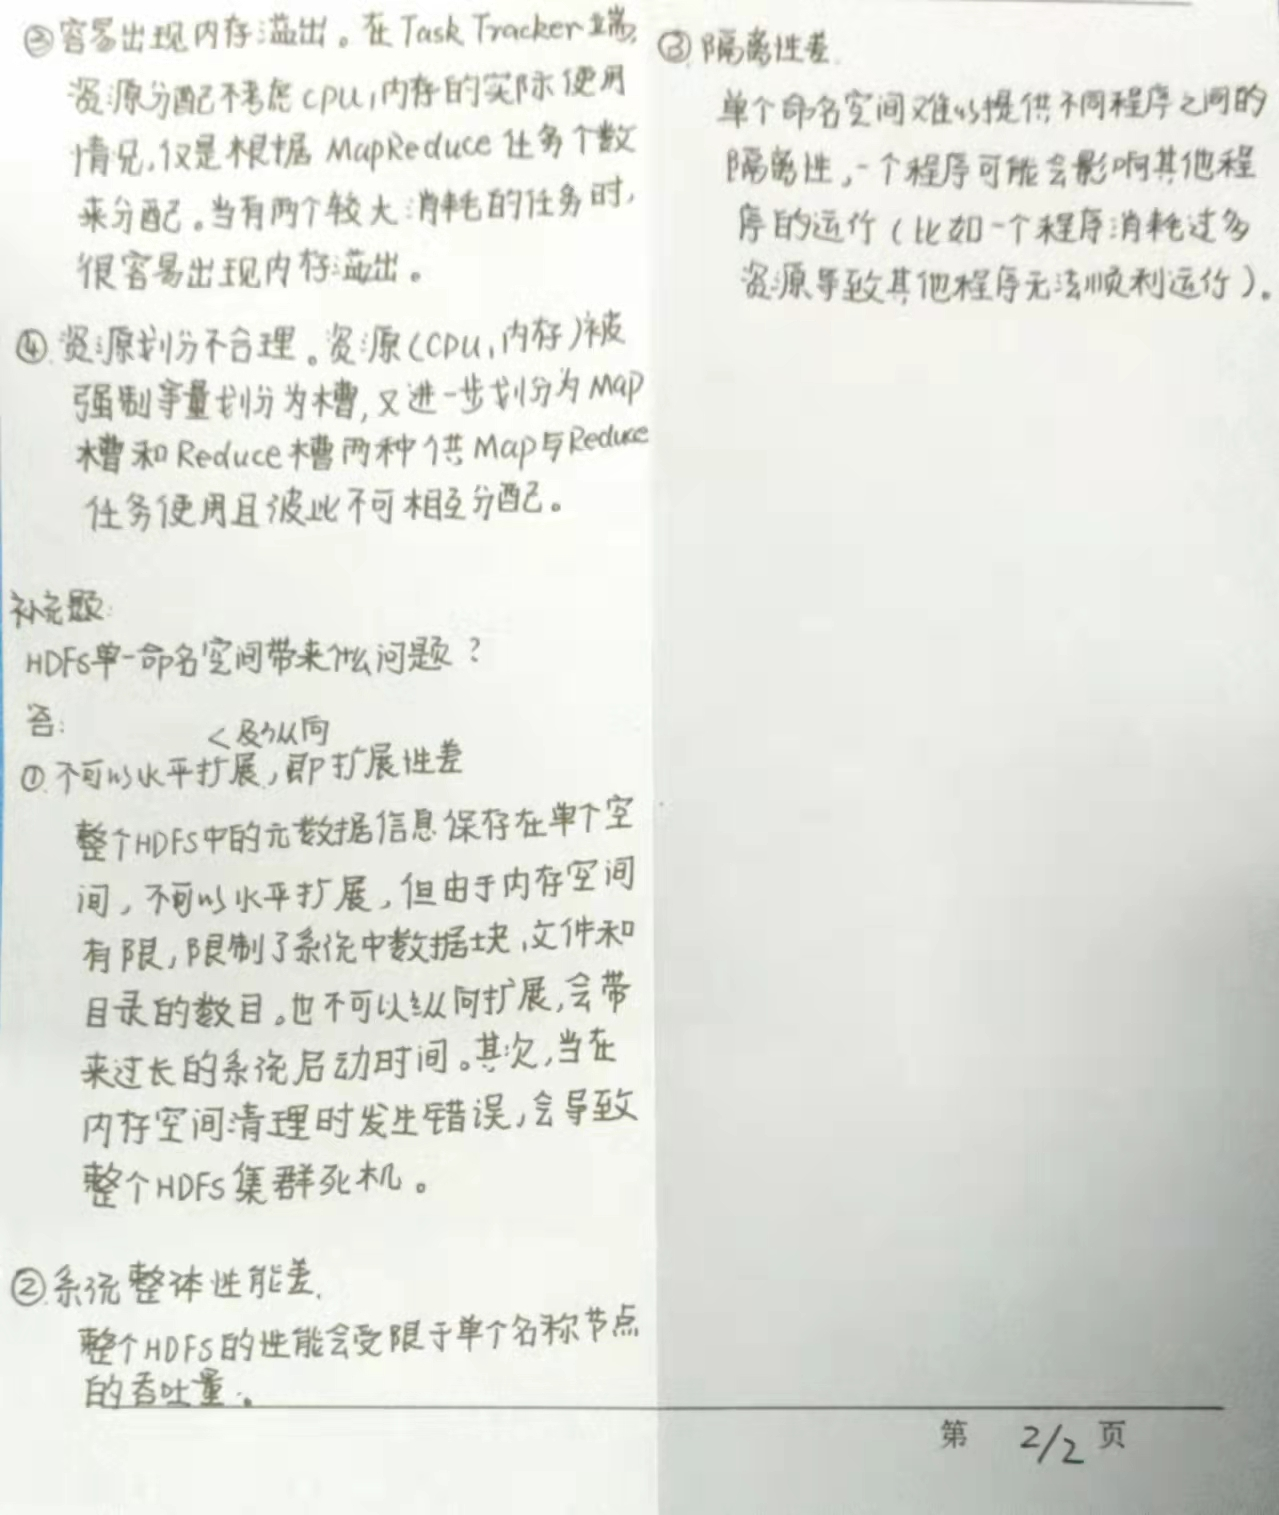 ③容易出现内存溢出。在Task Tracker端,
资源分配不考虑CPU,内存的实际使用
情况,仅是根据MapReduce任务个数
来分配。当有两个较大消耗的任务时,
很容易出现内存溢出。
④.资源划分不合理。资源(CPU,内存)被
强制等量划分为槽,又进一步划分为Map
槽和Reduce槽两种供Map与Reduce
任务使用且彼此不可相互分配。
补充题:
HDFS单一命名空间带来什么问题?
答:
<及纵向
①.不可以水平扩展,即扩展性差
整个HDFS中的元数据信息保存在单个空
间,不可以水平扩展,但由于内存空间
有限,限制了系统中数据块,文件和
目录的数目。也不可以纵向扩展,会带
来过长的系统启动时间。其次,当在
内存空间清理时发生错误,会导致
整个HDFS集群死机。
②.系统整体性能差.
整个HDFS的性能会受限于单个名称节点
的吞吐量。
③.隔离性差.
单个命名空间难以提供不同程序之间的
隔离性,一个程序可能会影响其他程
序的运行(比如一个程序消耗过多
资源导致其他程序无法顺利运行)。
第 2/2 页